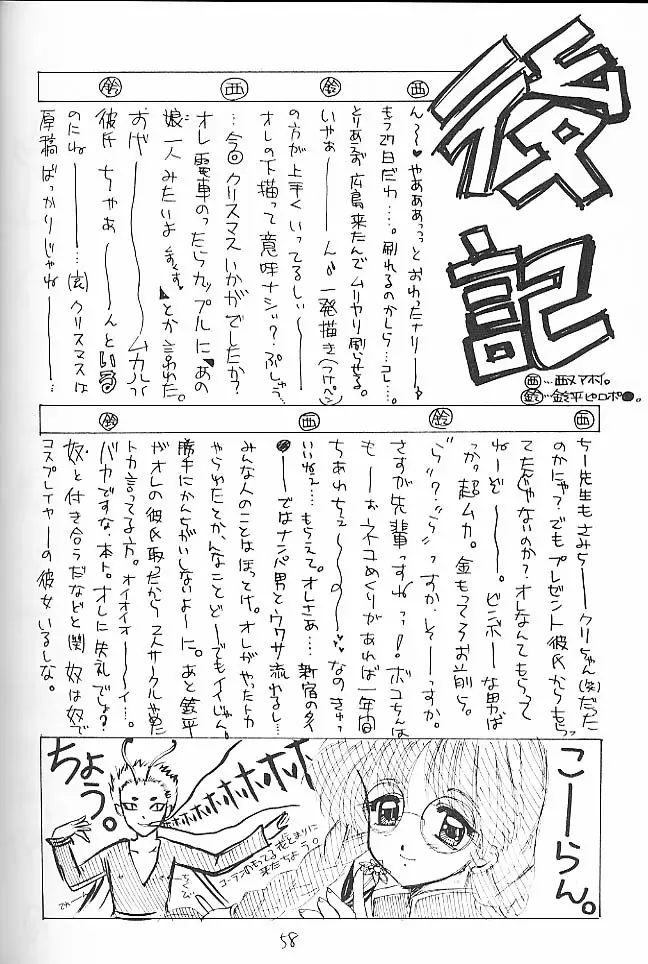 後記
㊄…西メアオイ。
㊎…鈴平ピロポ●。
西
鈴
西
鈴
ん〜♥やあああっっとおわったナリ——♥
もう27日だわ…。刷れるのかしら…コレ…。
とりあえず広島来たんでムリヤリ刷らせる。
いやぁ——ん♥一発描き(つけペン)
の方が上手くいってるしぃ——
オレの下描って意味ナシ?ぷしゅう…
…今回クリスマスいかがでしたか?
オレ電車のったらカップルに「あの
娘一人みたいよ とか言われた。
おのれ———ムカルっ
彼氏ちゃあ——んといる
のにね———…(玄)クリスマスは
原稿ばっかりじゃね———…
西
鈴
西
鈴
ちー先生もさみち——クリちゃん(笑)だった
のかにゃ?でもプレゼント彼氏からもらっ
てたんじゃないのか?オレなんてもらって
ねーぞ———。ビンボーな男ば
っか。超ムカ。金もってろお前ら。
“ら”?“ら”っすか、そーっすか。
さすが先輩っすねっっ!ボコちんは
も——おネコめくりがあれば一年間
ちあわちぇ〜〜の〜♥なのきゅっ
いいねぇ…もらえて。オレさぁ…新宿のタイ
●ーではナンパ男とウワサ流れるし…
みんな人のことはほっとけ。オレがやったトカ
やられたとか、んなことど——でもイイじゃん。
勝手にかんちがいしないよーに。あと鈴平
がオレの彼氏取ったから2人サークルやめた
トカ言ってる方。オイオイオ——イ…。
バカですな、本ト。オレに失礼でしょ?
奴と付き合うだなどと聞 奴は奴で
コスプレイヤーの彼女いるしな。
こーらん。
ホホホホホホホホ
ちょう。
コーランのもってる花とまりに
来たちょう。
ちくび
でれーん
58